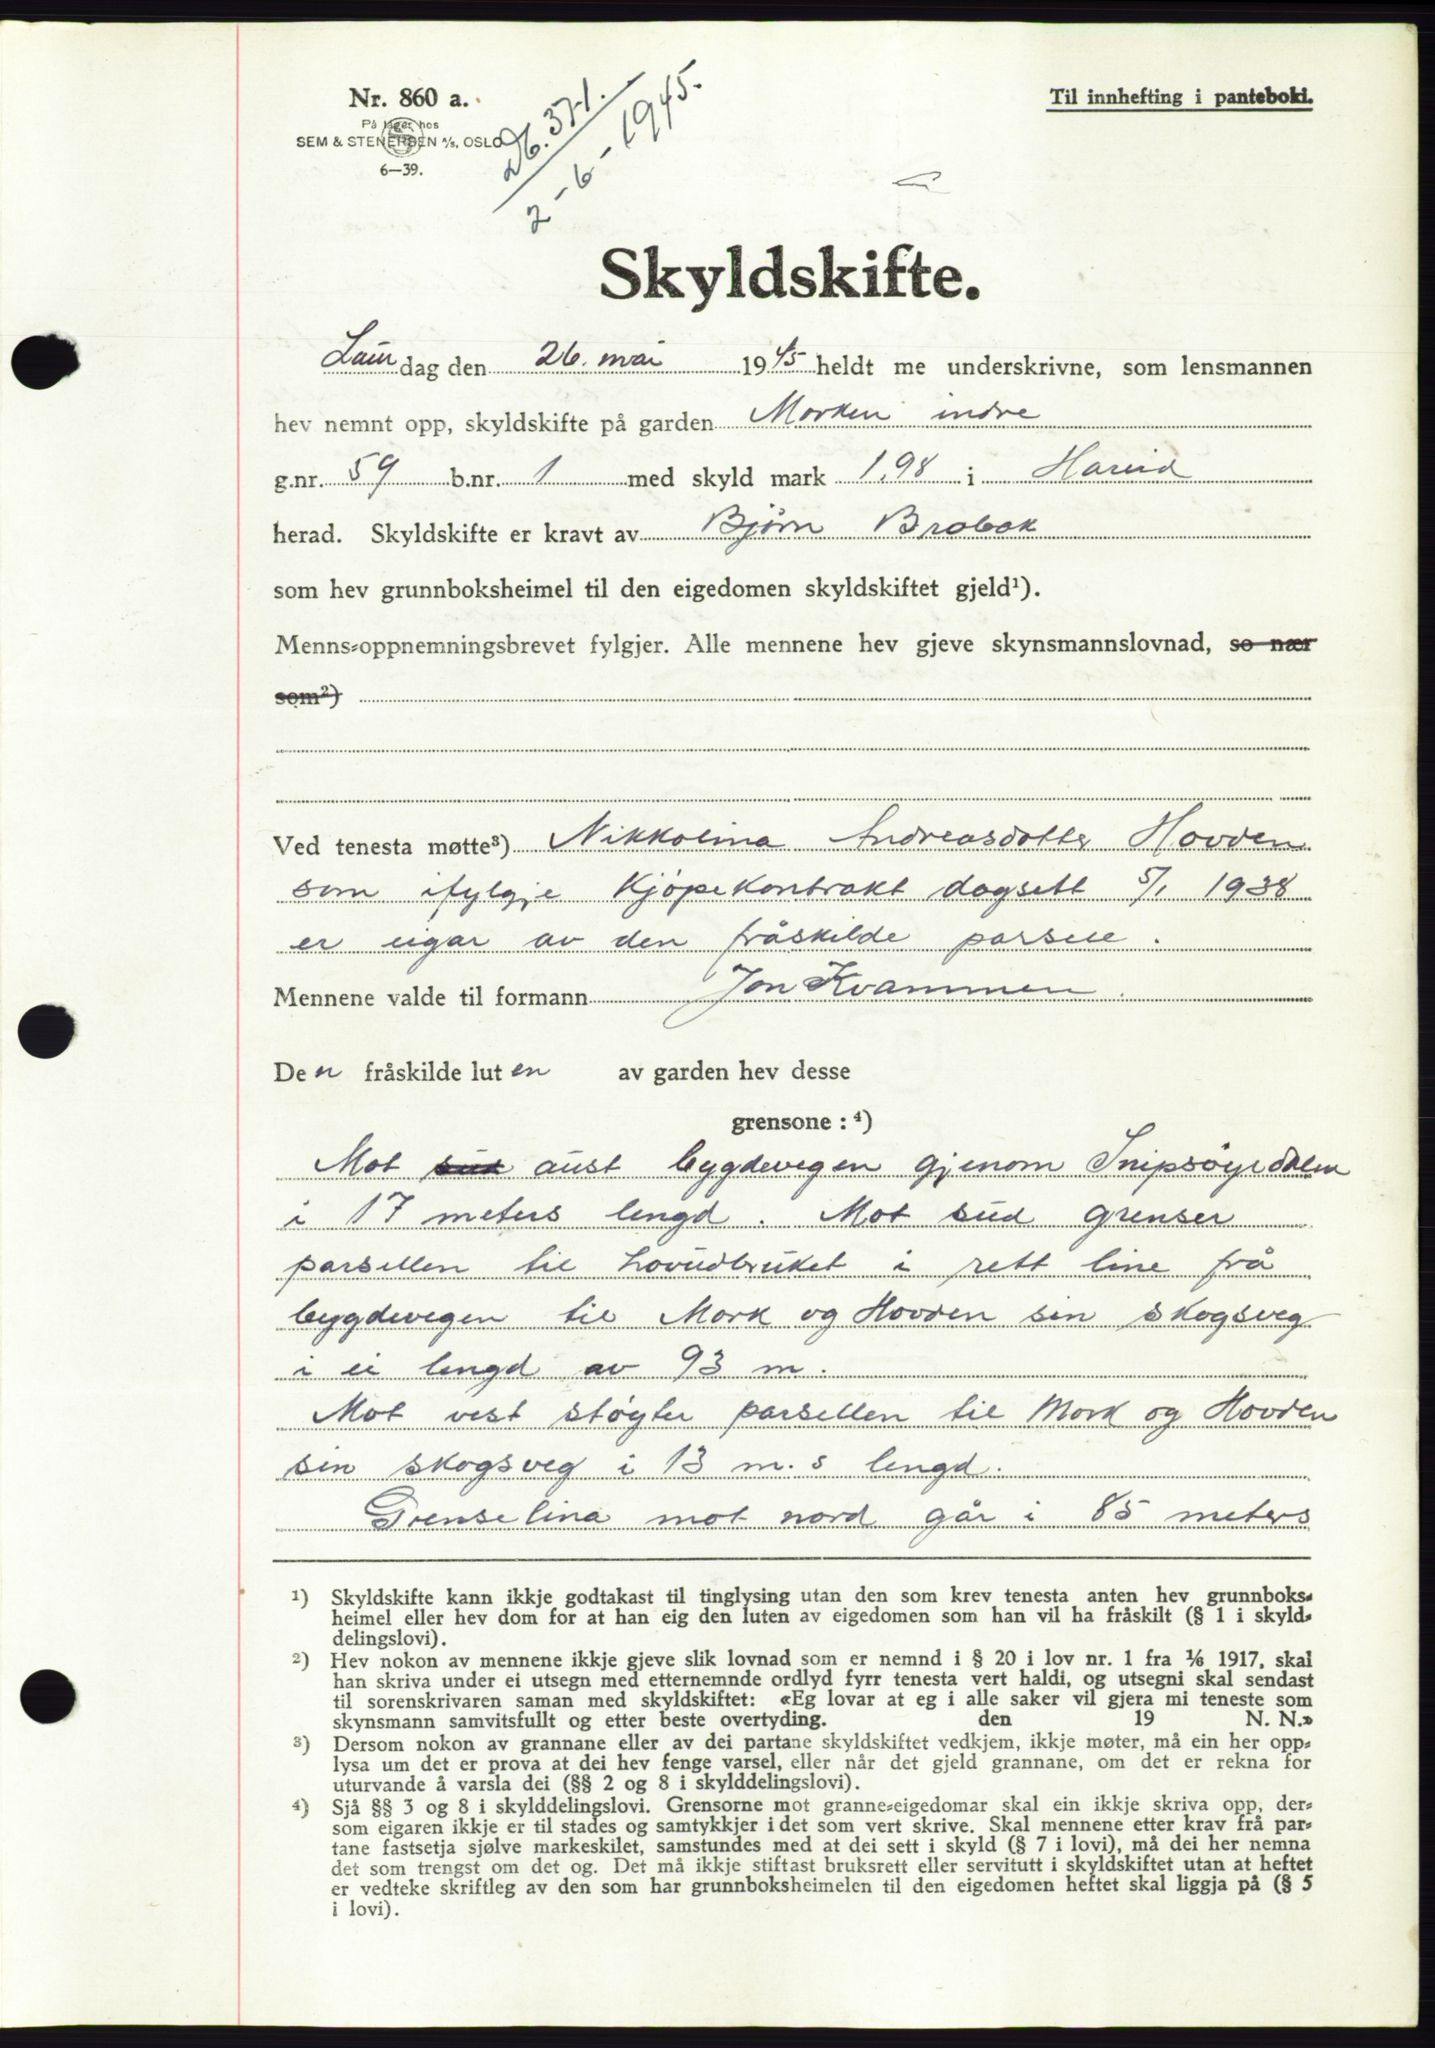 Nr. 860 a.
På lager hos
SEM & STENERSEN A/S, OSLO
6—39.
Db. 371.
2-6-1945.
Til innhefting i panteboki.
Skyldskifte.
Laur dag den 26. mai 1945 heldt me underskrivne, som lensmannen
hev nemnt opp, skyldskifte på garden Morken indre
g.nr. 59 b.nr. 1 med skyld mark 1,98 i Hareid
herad. Skyldskifte er kravt av Bjørn Brobak
som hev grunnboksheimel til den eigedomen skyldskiftet gjeld¹).
Menns-oppnemningsbrevet fylgjer. Alle mennene hev gjeve skynsmannslovnad, so nær
som²)
Ved tenesta møtte³) Nikkolina Andreasdotter Hovden
som ifylgje kjøpekontrakt dagsett 5/1 1938
er eigar av den fråskilde parsell.
Mennene valde til formann Jon Kvammen.
Den fråskilde luten av garden hev desse
grensone : ⁴)
Mot sud aust bygdevegen gjenom Snipsøyrdalen
i 17 meters lengd. Mot sud grenser
parsellen til hovudbruket i rett line frå
bygdevegen til Mork og Hovden sin skogsveg
i ei lengd av 93 m.
Mot vest støyter parsellen til Mork og Hovden
sin skogsveg i 13 m.s lengd.
Grenselina mot nord går i 85 meters
¹) Skyldskifte kann ikkje godtakast til tinglysing utan den som krev tenesta anten hev grunnboks-
heimel eller hev dom for at han eig den luten av eigedomen som han vil ha fråskilt (§ 1 i skyld-
delingslovi).
²) Hev nokon av mennene ikkje gjeve slik lovnad som er nemnd i § 20 i lov nr. 1 fra 1/6 1917, skal
han skriva under ei utsegn med etternemnde ordlyd fyrr tenesta vert haldi, og utsegni skal sendast
til sorenskrivaren saman med skyldskiftet: «Eg lovar at eg i alle saker vil gjera mi teneste som
skynsmann samvitsfullt og etter beste overtyding. den 19 N. N.»
³) Dersom nokon av grannane eller av dei partane skyldskiftet vedkjem, ikkje møter, må ein her opp-
lysa um det er prova at dei hev fenge varsel, eller når det gjeld grannane, om det er rekna for
uturvande å varsla dei (§§ 2 og 8 i skylddelingslovi).
⁴) Sjå §§ 3 og 8 i skylddelingslovi. Grensorne mot granne-eigedomar skal ein ikkje skriva opp, der-
som eigaren ikkje er til stades og samtykkjer i det som vert skrive. Skal mennene etter krav frå par-
tane fastsetja sjølve markeskilet, samstundes med at dei sett i skyld (§ 7 i lovi), må dei her nemna
det som trengst om det og. Det må ikkje stiftast bruksrett eller servitutt i skyldskiftet utan at heftet
er vedteke skriftleg av den som har grunnboksheimelen til den eigedomen heftet skal liggja på (§ 5
i lovi).